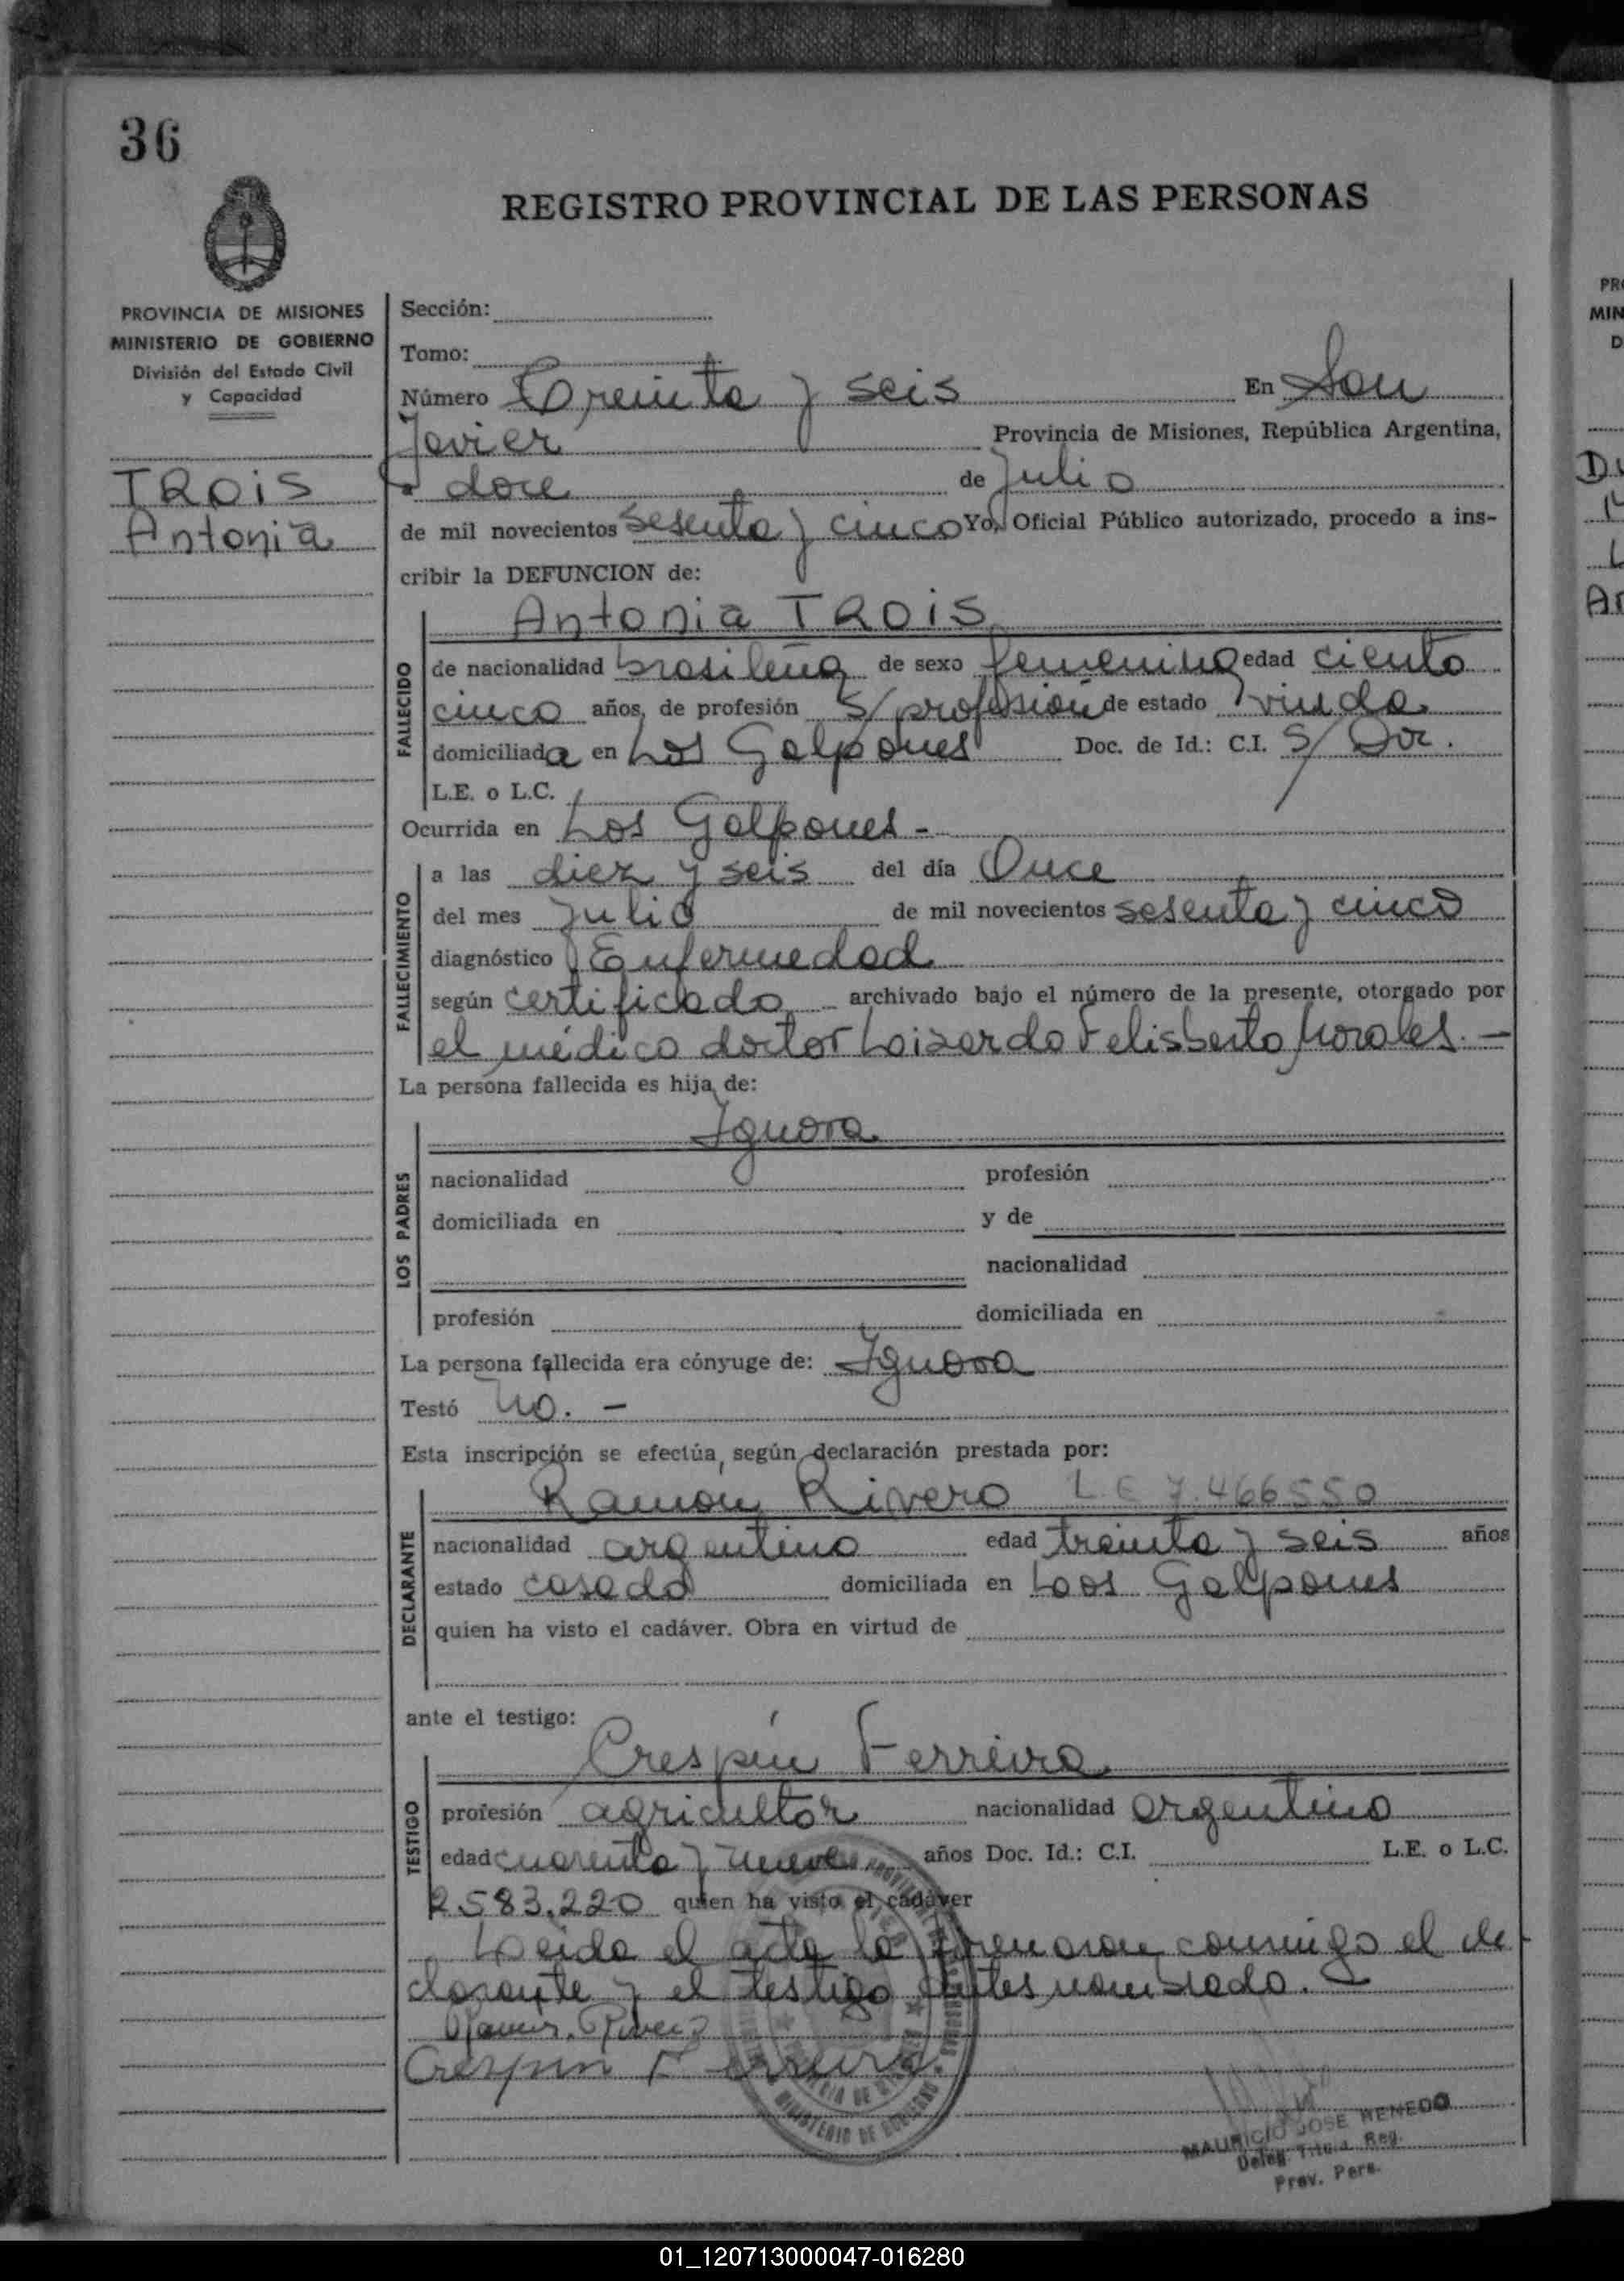 36
REGISTRO PROVINCIAL DE LAS PERSONAS
PROVINCIA DE MISIONES
MINISTERIO DE GOBIERNO
División del Estado Civil
y Capacidad
TROIS
Antonia
Sección:
Tomo:
Número Treinta y seis En San
Javier Provincia de Misiones, República Argentina,
a doce de Julio
de mil novecientos sesenta y cinco Yo, Oficial Público autorizado, procedo a ins-
cribir la DEFUNCION de:
FALLECIDO
Antonia TROIS
de nacionalidad brasileña de sexo femenino edad ciento
cinco años, de profesión S/ profesión de estado viuda
domiciliada en Los Galpones Doc. de Id.: C.I. S/ Doc.
L.E. o L.C.
Ocurrida en Los Galpones -
FALLECIMIENTO
a las diez y seis del día Once
del mes Julio de mil novecientos sesenta y cinco
diagnóstico Enfermedad
según certificado archivado bajo el número de la presente, otorgado por
el médico doctor Loizardo Felisberto Morales. -
La persona fallecida es hija de:
LOS PADRES
Ignora
nacionalidad profesión
domiciliada en y de
nacionalidad
profesión domiciliada en
La persona fallecida era cónyuge de: Ignora
Testó no. -
Esta inscripción se efectúa, según declaración prestada por:
DECLARANTE
Ramon Rivero L E 7.466550
nacionalidad argentino edad treinta y seis años
estado casado domiciliada en Loos Galpones
quien ha visto el cadáver. Obra en virtud de
ante el testigo:
TESTIGO
Crespín Ferreira
profesión agricultor nacionalidad argentino
edad cuarenta y nueve años Doc. Id.: C.I. L.E. o L.C.
2583.220 quien ha visto el cadáver
Leida el acta la firmaron conmigo el de
clarante y el testigo antes nombrado. -
Crespin Ferreira
MINISTERIO DE GOBIERNO
MAURICIO JOSE RENEDO
Deleg. Titular Reg.
Prov. Pers.
01_120713000047-016280